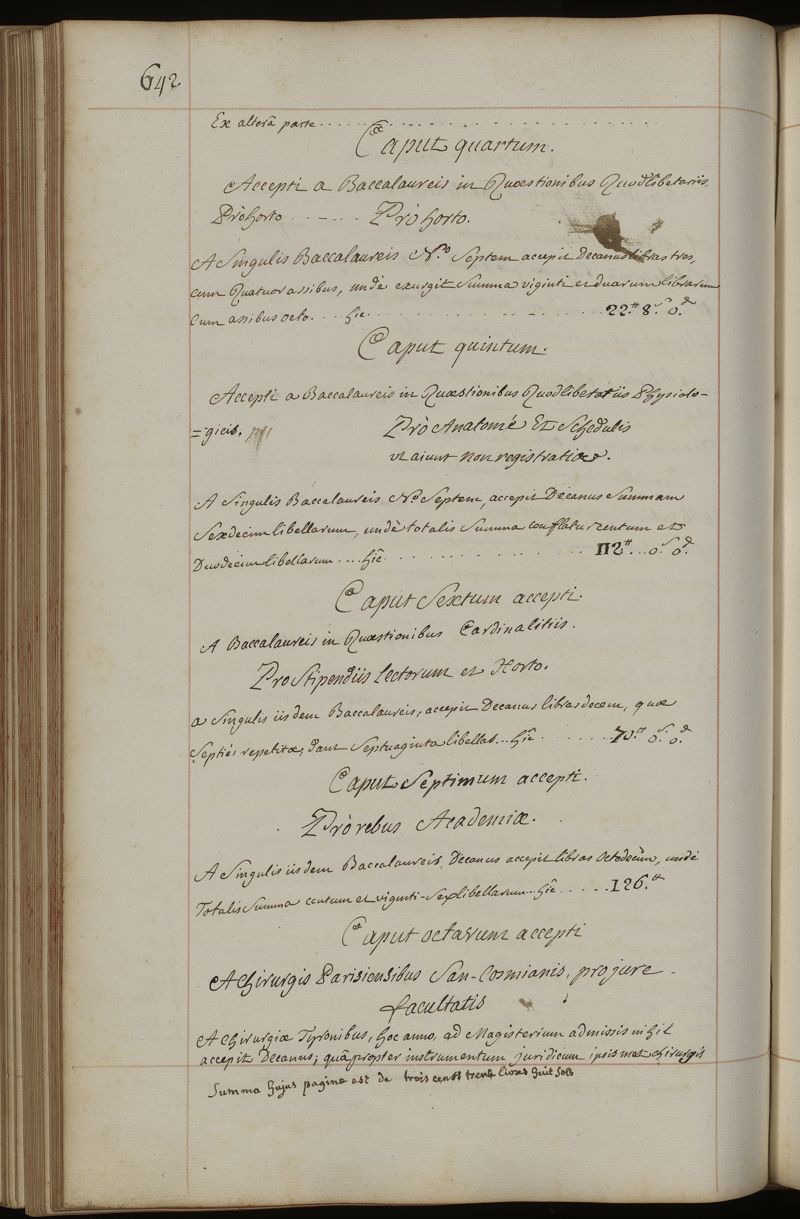 642
Ex alterâ parte . . . . . . . . . . . . . . . . . . . .
Caput quartum.
Accepti a Baccalaureis in Quæstionibus Quodlibetariis
Pro horto . . . . . . Prò horto.
A Singulis Baccalaureis N.o Septem accepit Decanus libras tres,
cum Quatuor assibus, unde exurgit Summa viginti et duarum librarum
Cum assibus octo. . . . hic . . . . . . . . . . . . . . . 22.tt 8.s 0.d
Caput quintum.
Accepti a Baccalaureis in Quæstionibus Quodlibetariis Physiolo-
=gicis.
Prò Anatomé Et Schedulis
ut aiunt non registratiæ.
A Singulis Baccalaureis N.o Septem, accepit Decanus Summam
Sexdecim libellarum, undè totalis Summa conflatur centum et
Duodecim libellarum . . . . hîc . . . . . . . . . . . . . 112.tt . . 0.s 0.d
Caput Sextum accepti.
A Baccalaureis in Quæstionibus Cardinalitiis.
Pro Stipendiis lectorum et Horto.
a Singulis iisdem Baccalaureis, accepit Decanus libras decem, quæ
Septiés repetitæ, dant Septuaginta libellas . . . hîc . . . . . . . 70.tt 0.s 0.d
Caput Septimum accepti.
Prò rebus Academiæ.
A Singulis iisdem Baccalaureis, Decanus accepit libras Octodecim, undè
Totalis Summa centum et viginti-Sex libellarum . . hîc . . . . . 126.tt
Caput octavum accepti
A Chirurgis Parisiensibus San-Cosmianis, pro jure
facultatis
A Chirurgiæ Tyronibus, hoc anno, ad Magisterium admissis nihil
accepit Decanus; quâpropter instrumentum juridicum ipsismet chirurgis
Summa hujus paginæ est de trois cents trente livres huit sols